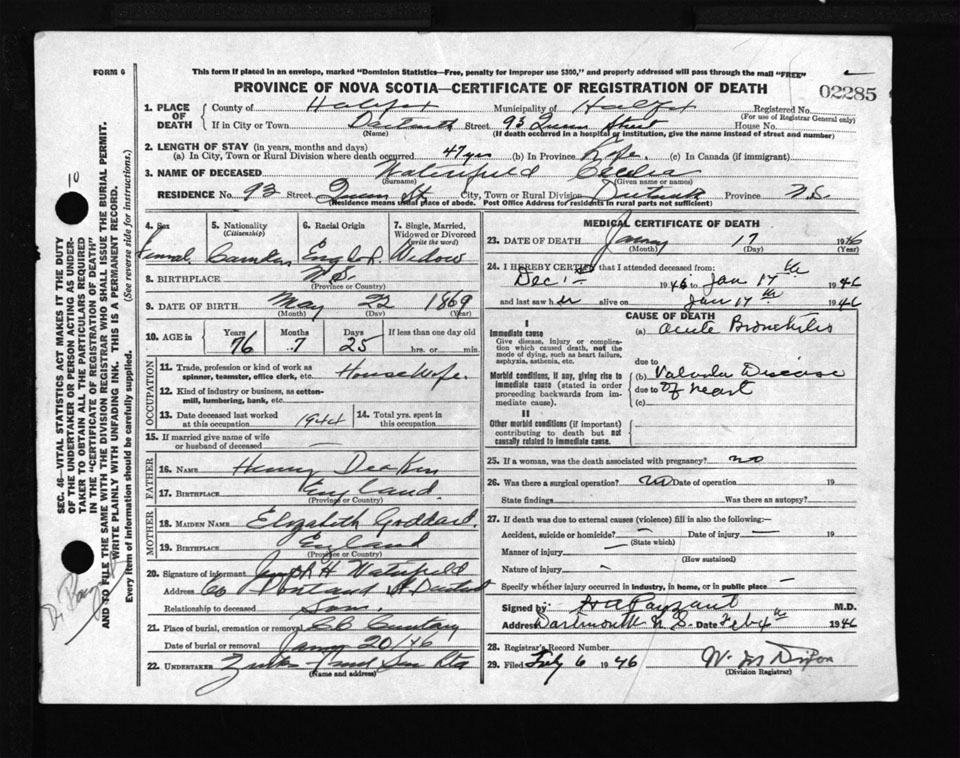 FORM 6
This form if placed in an envelope, marked "Dominion Statistics—Free, penalty for improper use $300," and properly addressed will pass through the mail "FREE"
PROVINCE OF NOVA SCOTIA—CERTIFICATE OF REGISTRATION OF DEATH
02285
1. PLACE OF DEATH
County of Halifax Municipality of Halifax Registered No.
(For use of Registrar General only)
If in City or Town Dartmouth Street 93 Queen Street House No.
(Name) (If death occurred in a hospital or institution, give the name instead of street and number)
2. LENGTH OF STAY (in years, months and days)
(a) In City, Town or Rural Division where death occurred 47 yrs (b) In Province Life (c) In Canada (if immigrant)
3. NAME OF DECEASED Waterfield Cecilia
(Surname) (Given name or names)
RESIDENCE No. 93 Street Queen St. City, Town or Rural Division Dartmouth Province N.S.
(Residence means usual place of abode. Post Office Address for residents in rural parts not sufficient)
4. Sex Female
5. Nationality (Citizenship) Canadian
6. Racial Origin Eng
7. Single, Married, Widowed or Divorced (write the word) Widow
8. BIRTHPLACE N.S.
(Province or Country)
9. DATE OF BIRTH May 22 1869
(Month) (Day) (Year)
10. AGE in Years 76 Months 7 Days 25 If less than one day old hrs. or min.
OCCUPATION
11. Trade, profession or kind of work as spinner, teamster, office clerk, etc. House Wife.
12. Kind of industry or business, as cotton-mill, lumbering, bank, etc.
13. Date deceased last worked at this occupation 1944
14. Total yrs. spent in this occupation
15. If married give name of wife or husband of deceased
FATHER
16. NAME Henry Deakin
17. BIRTHPLACE England
(Province or Country)
MOTHER
18. MAIDEN NAME Elizabeth Goddard
19. BIRTHPLACE England
(Province or Country)
20. Signature of informant Joseph H Waterfield
Address 60 Portland St Dartmouth
Relationship to deceased Son.
21. Place of burial, cremation or removal Cemetary
Date of burial or removal Jany 20/46
22. UNDERTAKER Ltd
(Name and address)
MEDICAL CERTIFICATE OF DEATH
23. DATE OF DEATH January 17 1946
(Month) (Day) (Year)
24. I HEREBY CERTIFY that I attended deceased from:
Dec 1st 1945 to Jan 17th 1946
and last saw her alive on Jan 17th 1946
CAUSE OF DEATH
I
Immediate cause
Give disease, injury or complication which caused death, not the mode of dying, such as heart failure, asphyxia, asthenia, etc.
(a) Acute Bronchitis
due to
Morbid conditions, if any, giving rise to immediate cause (stated in order proceeding backwards from immediate cause).
(b) Valvular Disease
due to of heart
(c)
II
Other morbid conditions (if important) contributing to death but not causally related to immediate cause.
25. If a woman, was the death associated with pregnancy? no
26. Was there a surgical operation? no Date of operation 19
State findings Was there an autopsy?
27. If death was due to external causes (violence) fill in also the following:—
Accident, suicide or homicide? — Date of injury — 19
(State which)
Manner of injury —
(How sustained)
Nature of injury —
Specify whether injury occurred in industry, in home, or in public place —
Signed by H A Payzant M.D.
Address Dartmouth N.S. Date Feb 4th 1946
28. Registrar's Record Number
29. Filed Feby 6 1946
(Division Registrar)
SEC. 46—VITAL STATISTICS ACT MAKES IT THE DUTY
OF THE UNDERTAKER OR PERSON ACTING AS UNDER-
TAKER TO OBTAIN ALL THE PARTICULARS REQUIRED
IN THE "CERTIFICATE OF REGISTRATION OF DEATH"
AND TO FILE THE SAME WITH THE DIVISION REGISTRAR WHO SHALL ISSUE THE BURIAL PERMIT.
WRITE PLAINLY WITH UNFADING INK. THIS IS A PERMANENT RECORD.
Every item of information should be carefully supplied. (See reverse side for instructions.)
10